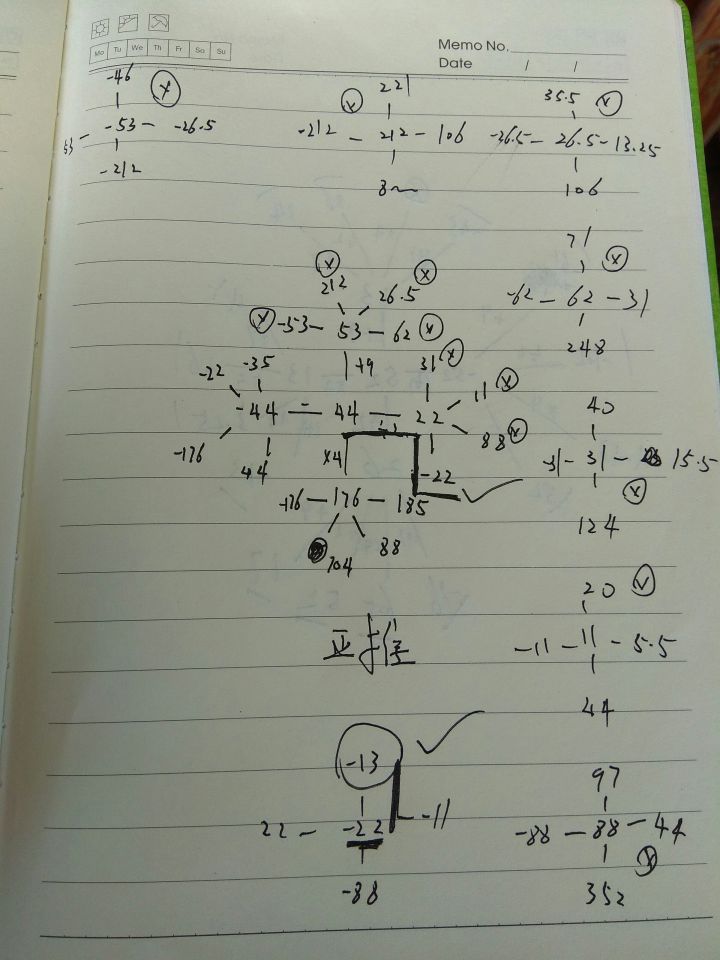 Memo No.
Mo Tu We Th Fr Sa Su
Date / /
-46 221 35.5
53 - -53 - -26.5 -212 - 212 - 106 -26.5 - 26.5 - 13.25
-212 106
71
212 26.5 -62 - 62 - 31
-53 - 53 - 62 248
+9 31
-22 -35 11 40
-44 - 44 - 22
-176 44 ×4 88 -31 - 31 - 15.5
-22
-176 - 176 - 185 124
704 88
20
-11 - 11 - 5.5
44
-13 97
22 - -22 - -11 -88 - 88 - 44
-88 352